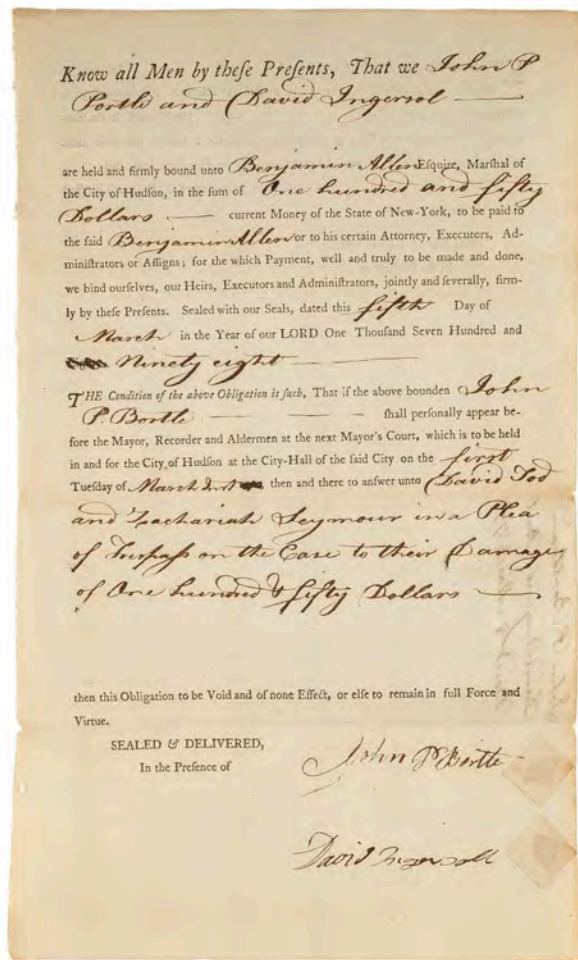 Know all Men by theſe Preſents, That we John P
Portle and David Ingersol
are held and firmly bound unto Benjamin Allen Eſquire, Marſhal of
the City of Hudſon, in the ſum of One hundred and fifty
Dollars current Money of the State of New-York, to be paid to
the ſaid Benjamin Allen or to his certain Attorney, Executors, Ad-
miniſtrators or Aſſigns; for the which Payment, well and truly to be made and done,
we bind ourſelves, our Heirs, Executors and Adminiſtrators, jointly and ſeverally, firm-
ly by theſe Preſents. Sealed with our Seals, dated this fifth Day of
March in the Year of our LORD One Thouſand Seven Hundred and
Ninety eight
THE Condition of the above Obligation is ſuch, That if the above bounden John
P. Bortle ſhall perſonally appear be-
fore the Mayor, Recorder and Aldermen at the next Mayor's Court, which is to be held
in and for the City of Hudſon at the City-Hall of the ſaid City on the first
Tueſday of March Inst then and there to anſwer unto David Tod
and Zachariah Seymour in a Plea
of Trespass on the Case to their Damage
of One hundred & fifty Dollars
then this Obligation to be Void and of none Effect, or elſe to remain in full Force and
Virtue.
SEALED & DELIVERED,
In the Preſence of
John P Bortle
David Ingersoll